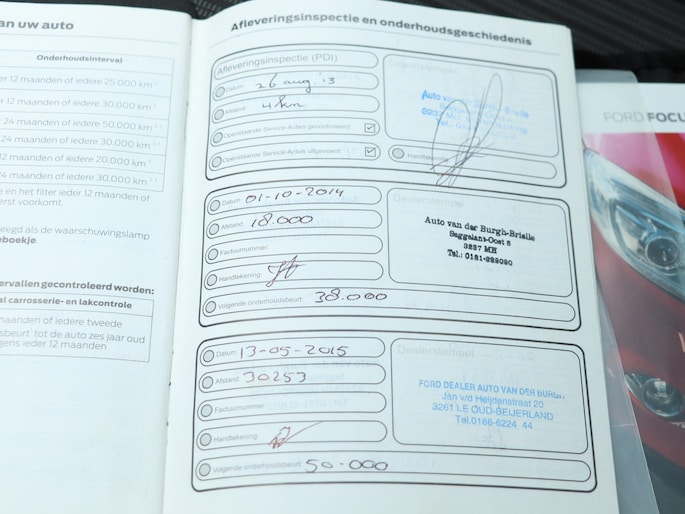 an uw auto
Onderhoudsinterval
r 12 maanden of iedere 25.000 km
r 12 maanden of iedere 30.000 km
24 maanden of iedere 50.000 km
24 maanden of iedere 30.000 km
12 maanden of iedere 20.000 km
24 maanden of iedere 30.000 km
e en het filter ieder 12 maanden of
erst voorkomt.
eegd als de waarschuwingslamp
eboekje.
ervallen gecontroleerd worden:
al carrosserie- en lakcontrole
maanden of iedere tweede
sbeurt tot de auto zes jaar oud
gens ieder 12 maanden
Afleveringsinspectie en onderhoudsgeschiedenis
Afleveringsinspectie (PDI)
Datum: 26 aug. '13
Afstand: 4 km
Openstaande Service Acties gecontroleerd:
Openstaande Service Acties uitgevoerd:
Dealerstempel
Auto van der Burgh-Brielle
Handtekening:
Datum: 01-10-2014
Afstand: 18.000
Factuurnummer:
Handtekening:
Volgende onderhoudsbeurt: 38.000
Dealerstempel
Auto van der Burgh-Brielle
Seggelant-Oost 8
3237 MH
Tel.: 0181-929020
Datum: 13-05-2015
Afstand: 30253
Factuurnummer:
Handtekening:
Volgende onderhoudsbeurt: 50.000
Dealerstempel
FORD DEALER AUTO VAN DER BURGH
Jan v/d Heijdenstraat 20
3261 LE OUD-BEIJERLAND
Tel.0186-6224 44
FORD FOCU